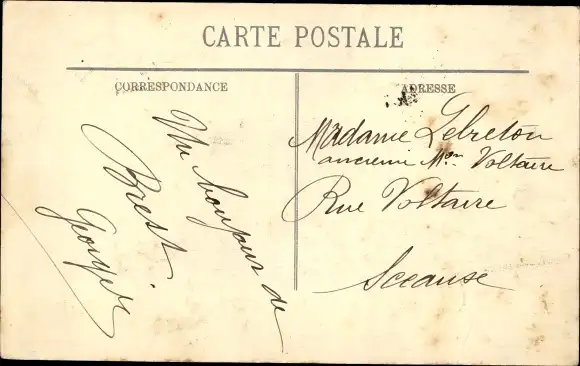 CARTE POSTALE
CORRESPONDANCE
Un bonjour de
Brest
ADRESSE
Madame Lebreton
ancienne Mon Voltaire
Rue Voltaire
Sceause